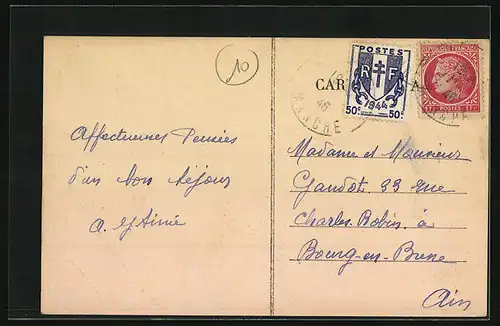 10
CAR
POSTES
RF
1944
50c 50c
REPUBLIQUE FRANÇAISE
POSTES
46
MANCHE
Affectueuses Pensées
d'un bon séjour
Madame et Monsieur
Gaudot. 33 Rue
Charles. Robin. à
Bourg-en-Bresse
Ain